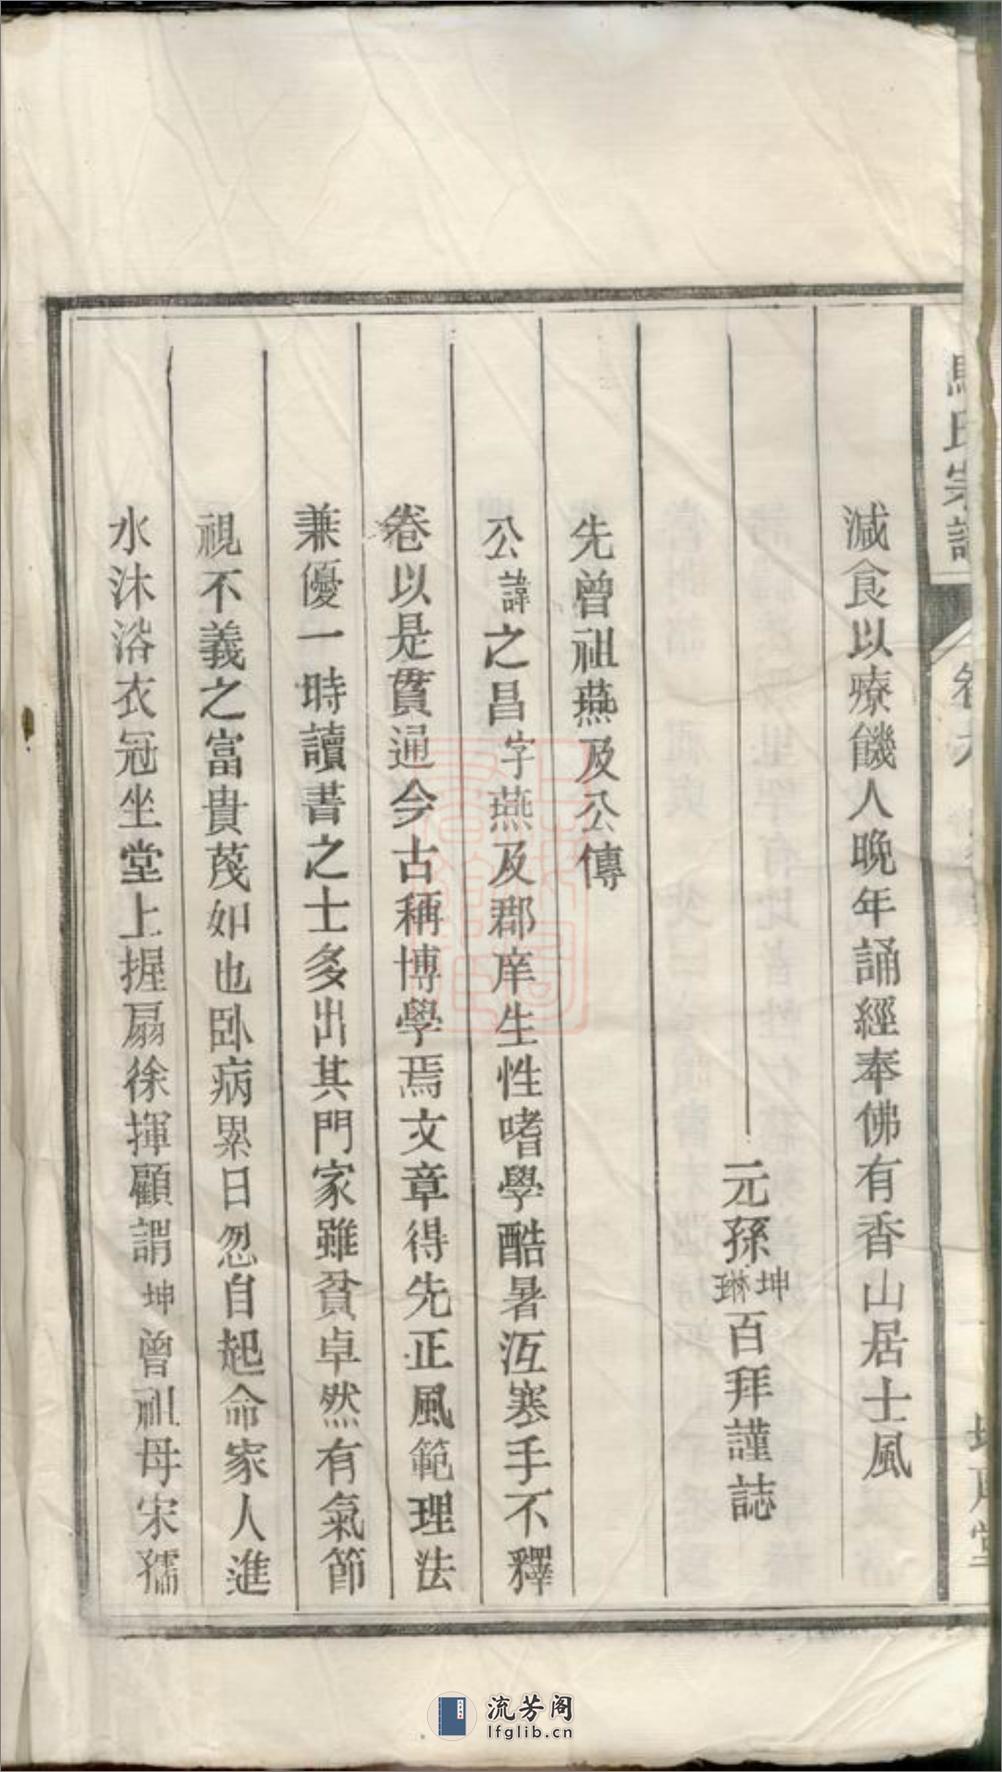 馬氏宗譜
減食以療饑人晚年誦經奉佛有香山居士風
元孫坤百拜謹誌
先曾祖燕及公傳
公諱之昌字燕及郡庠生性嗜學酷暑沍寒手不釋
卷以是貫通今古稱博學焉文章得先正風範理法
兼優一時讀書之士多出其門家雖貧卓然有氣節
視不義之富貴蔑如也卧病累日忽自起命家人進
水沐浴衣冠坐堂上握扇徐揮顧謂坤曾祖母宋孺
流芳阁
lfglib.cn